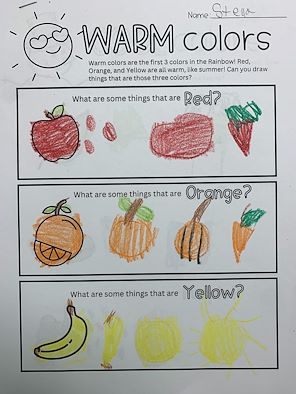 Name: Stella
WARM colors
Warm colors are the first 3 colors in the Rainbow! Red,
Orange, and Yellow are all warm, like summer! Can you draw
things that are those three colors?
What are some things that are Red?
What are some things that are Orange?
What are some things that are Yellow?